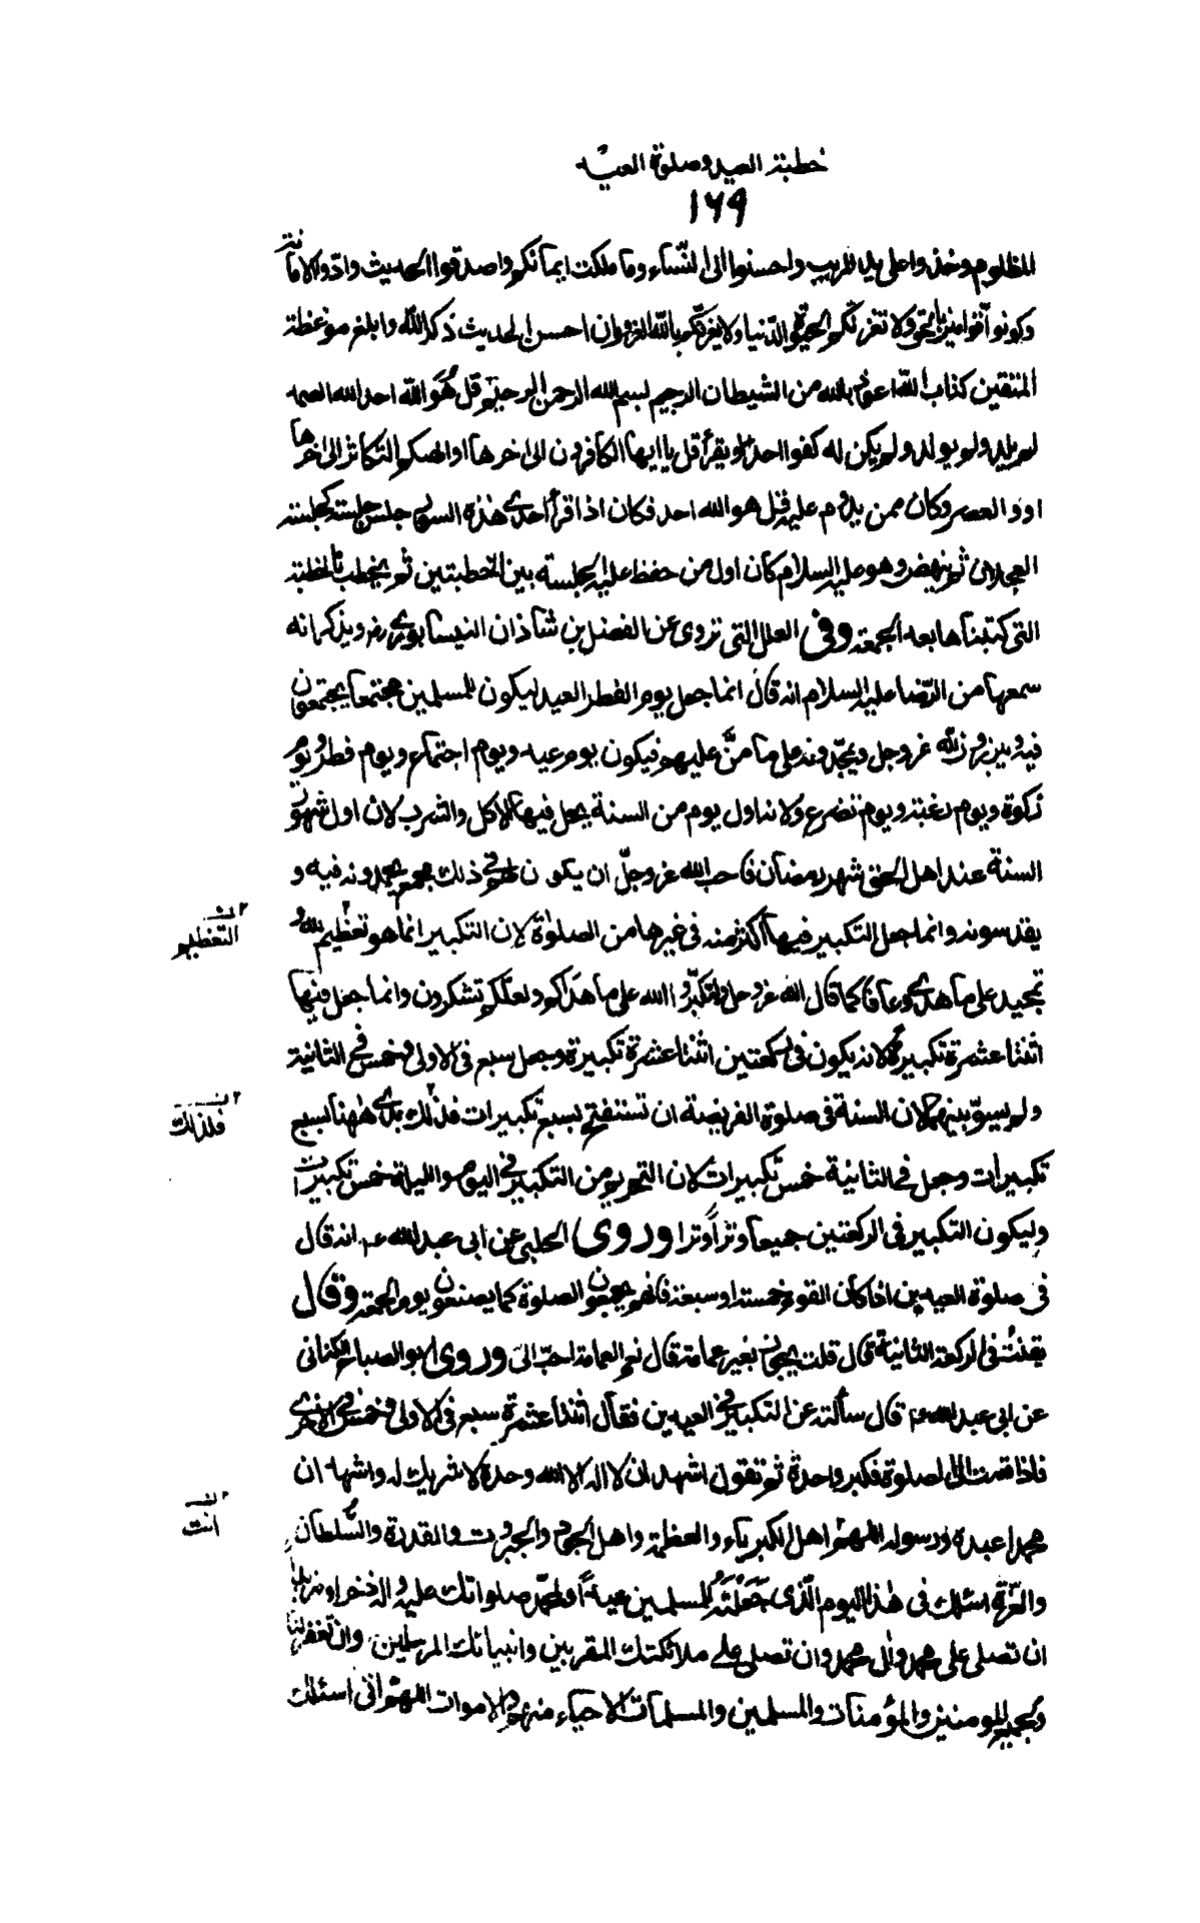 خطبة العيد وصلوة العيد
١٦٩
المظلوم وخذوا على يد المريب واحسنوا الى النساء وما ملكت ايمانكم واصدقوا الحديث وادوا الامانة
وكونوا قوامين بالحق ولا تغرنكم الحيوة الدنيا ولا يغرنكم بالله الغرور ان احسن الحديث ذكر الله وابلغ موعظة
المتقين كتاب الله اعوذ بالله من الشيطان الرجيم بسم الله الرحمن الرحيم قل هو الله احد الله الصمد
لم يلد ولم يولد ولم يكن له كفوا احد ويقرأ قل يا ايها الكافرون الى اخرها او الهيكم التكاثر الى اخرها
او والعصر وكان مما يدوم عليه قل هو الله احد فكان اذا قرأ احدى هذه السور جلس جلسة كجلسة
العجلان ثم ينهض وهو عليه السلام كان اول من حفظ عليه الجلسة بين الخطبتين ثم يخطب بالخطبة
التى كتبناها بعد الجمعة وفى العلل التى تروى عن الفضل بن شاذان النيسابورى رض ويذكر انه
سمعها من الرضا عليه السلام انه قال انما جعل يوم الفطر العيد ليكون للمسلمين مجتمعا يجتمعون
فيه ويبرزون لله عز وجل ويمجدونه على ما من عليهم فيكون يوم عيد ويوم اجتماع ويوم فطر ويوم
زكوة ويوم رغبة ويوم تضرع ولانه اول يوم من السنة يحل فيها الاكل والشرب لان اول شهور
السنة عند اهل الحق شهر رمضان فاحب الله عز وجل ان يكون لهم فى ذلك مجمع يحمدونه فيه و
يقدسونه وانما جعل التكبير فيها اكثر منه فى غيرها من الصلوة لان التكبير انما هو تعظيم لله و
التعظيم
تمجيد على ما هدى وعافا كما قال الله عز وجل ولتكبروا الله على ما هداكم ولعلكم تشكرون وانما جعل فيها
اثنتا عشرة تكبيرة لانه يكون فى ركعتين اثنتا عشرة تكبيرة وجعل سبع فى الاولى وخمس فى الثانية
ولم يسو بينهما لان السنة فى صلوة الفريضة ان تستفتح بسبع تكبيرات فلذلك بدئ ههنا بسبع
فلذلك
تكبيرات وجعل فى الثانية خمس تكبيرات لان التحريم من التكبير فى اليوم والليلة خمس تكبيرات
وليكون التكبير فى الركعتين جميعا وترا وترا وروى الحلبى عن ابى عبد الله ع انه قال
فى صلوة العيدين اذا كان القوم خمسة او سبعة فانهم يجمعون الصلوة كما يصنعون يوم الجمعة وقال
يقنت فى الركعة الثانية قال قلت يجوز بغير عمامة قال نعم العمامة احب الى وروى ابو الصباح الكنانى
عن ابى عبد الله ع قال سألته عن التكبير فى العيدين فقال اثنتا عشرة سبع فى الاولى وخمس فى الاخرى
فاذا قمت الى الصلوة فكبر واحدة ثم تقول اشهد ان لا اله الا الله وحده لا شريك له واشهد ان
محمدا عبده ورسوله اللهم اهل الكبرياء والعظمة واهل الجود والجبروت والقدرة والسلطان
انت
والعزة اسئلك فى هذا اليوم الذى جعلته للمسلمين عيدا ولمحمد صلواتك عليه واله ذخرا ومزيدا
ان تصلى على محمد وال محمد وان تصلى على ملائكتك المقربين وانبيائك المرسلين وان تغفر لنا
ولجميع المومنين والمؤمنات والمسلمين والمسلمات الاحياء منهم والاموات اللهم انى اسئلك